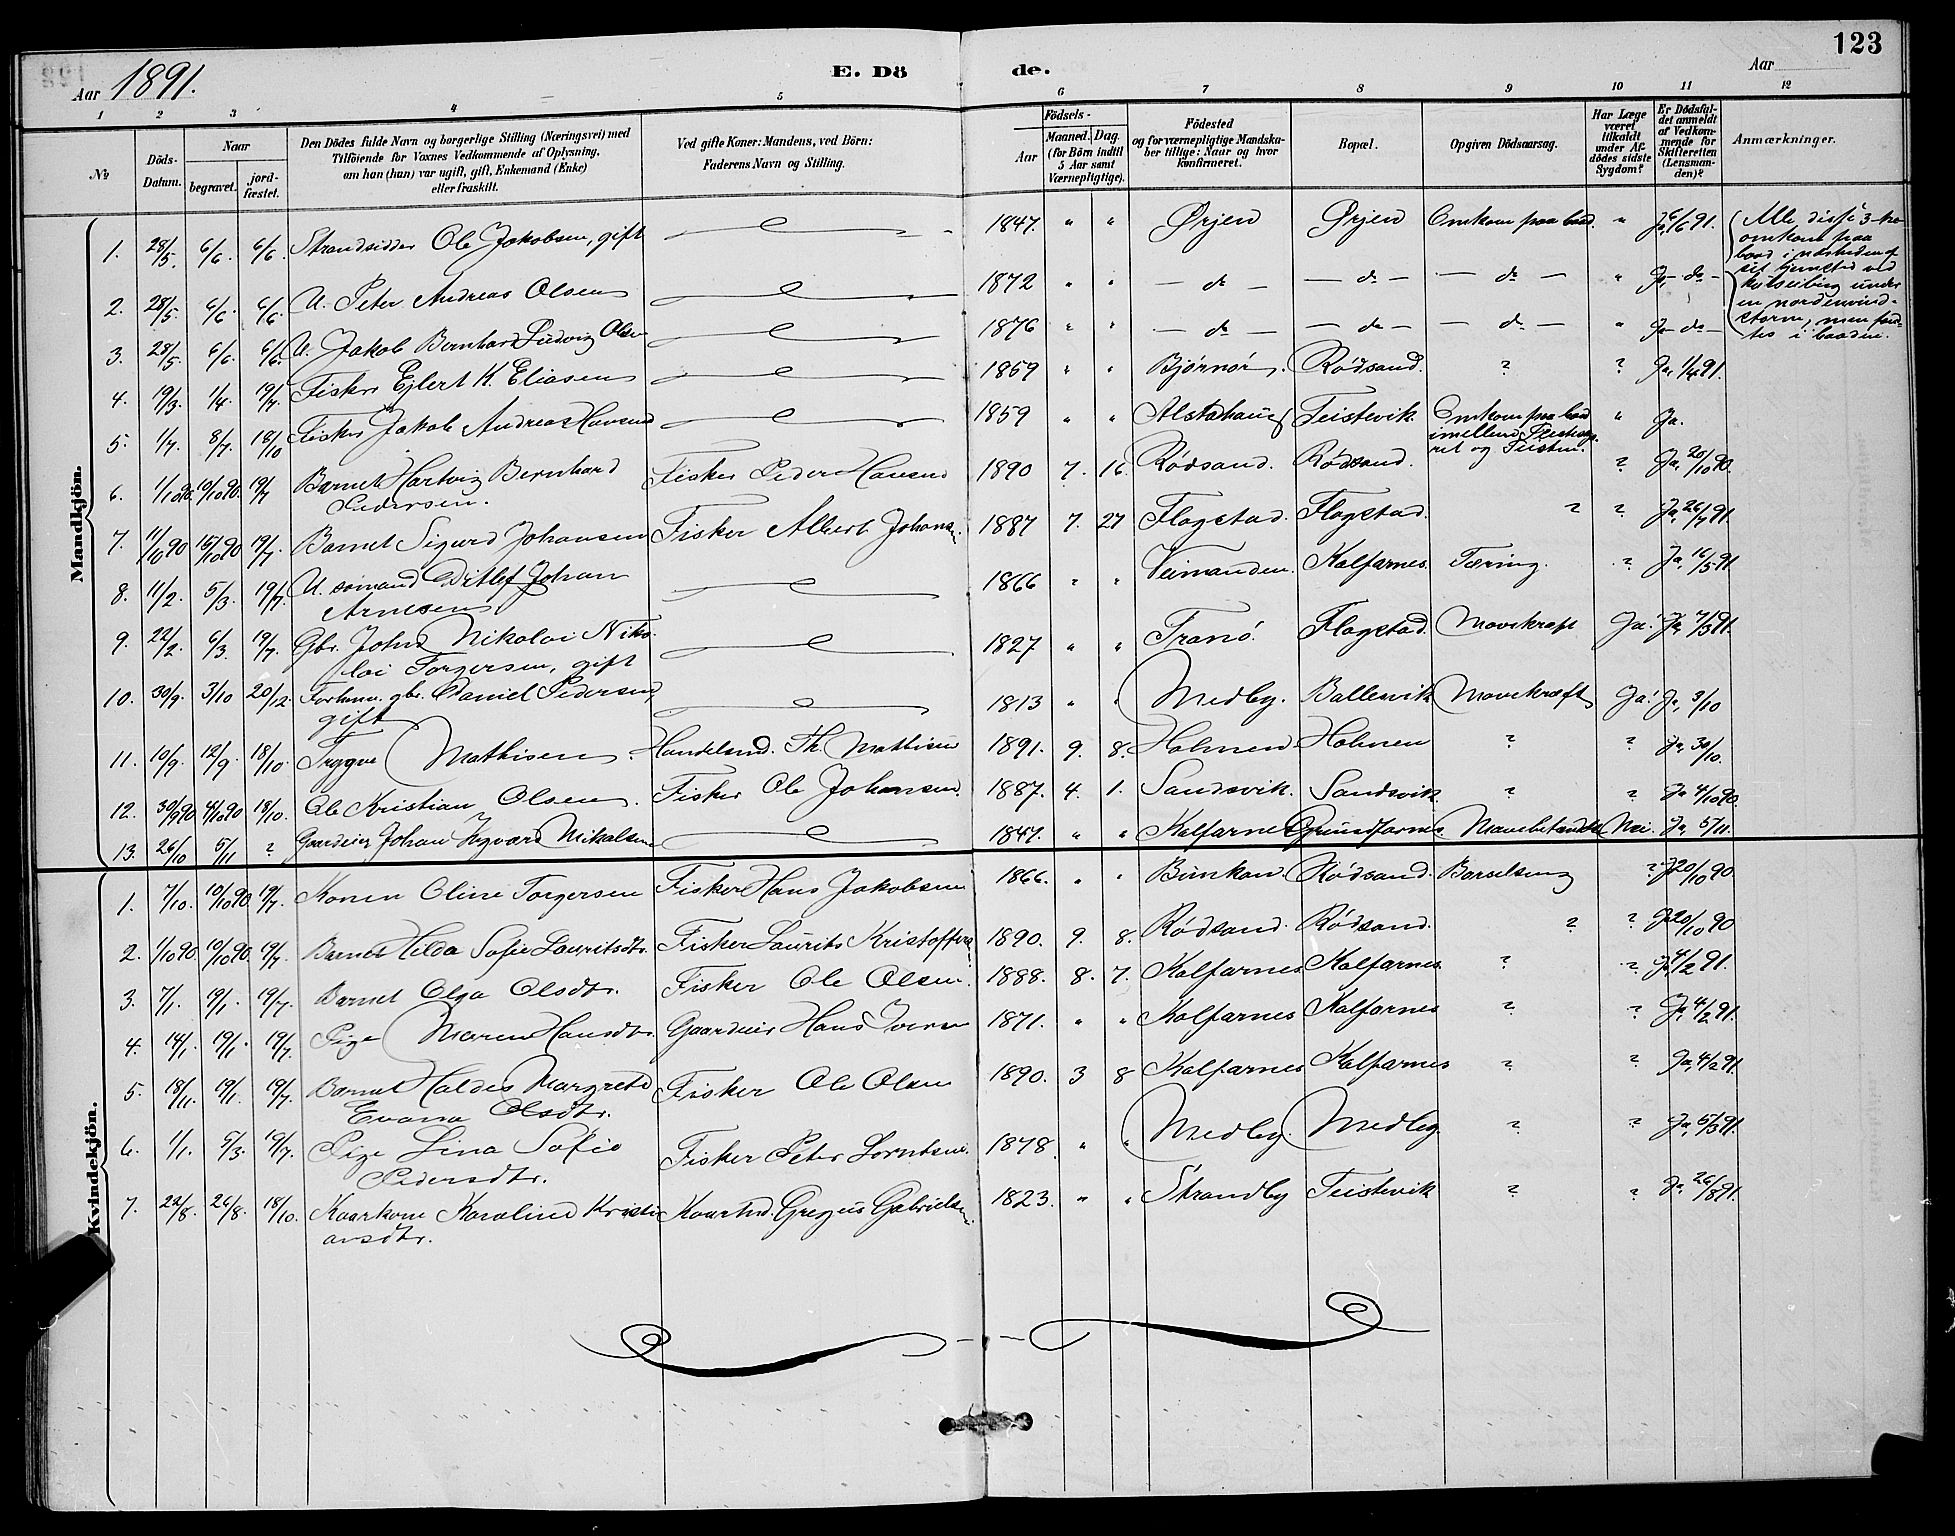 123
Aar 1891.
E. Dö de.
Aar
1 2 3 4 5 6 7 8 9 10 11 12
No
Döds-Datum.
Naar
begravet.
jord-fæstet.
Den Dödes fulde Navn og borgerlige Stilling (Næringsvei) med
Tilföiende for Voxnes Vedkommende af Oplysning,
om han (hun) var ugift, gift, Enkemand (Enke)
eller fraskilt.
Ved gifte Koner: Mandens, ved Börn:
Faderens Navn og Stilling.
Födsels-
Aar
Maaned. Dag.
(for Börn indtil
5 Aar samt
Værnepligtige).
Födested
og for værnepligtige Mandska-
ber tillige: Naar og hvor
konfirmeret.
Bopæl.
Opgiven Dödsaarsag.
Har Læge
været
tilkaldt
under Af-
dödes sidste
Sygdom?
Er Dödsfal-
det anmeldt
af Vedkom-
mende for
Skifteretten
(Lensman-
den)?
Anmærkninger.
Mandkjön.
1. 28/5. 6/6. 6/6. Strandsidder Ole Jakobsen, gift 1847. " " Ørjen Ørjen Omkom paa baad. " Ja, 6/6 91.
Alle disse 3-tre
omkom paa
baad i nærheden af
sit hjemsted ved
under
en nordenvind-
storm, men fand-
tes i baaden.
2. 28/5. 6/6. 6/6. U. Peter Andreas Olsen 1872 " " - do - - do - - do - " Ja - do -
3. 28/5. 6/6. 6/6. U. Jakob Bernhard Ludvig Olsen 1876 " " - do - - do - - do - " Ja - do -
4. 19/3. 1/4. 19/7. Fisker Ejlert K. Eliasen 1859 " " Bjørnør. Rødsand. ? ? Ja, 1/4 91.
5. 1/7. 8/7. 18/10 Fisker Jakob Andreas Hansen 1859 " " Alstahaug Teistevik Omkom paa baad
imellem
og Teisten. " Ja.
6. 1/10 90. 10/10 90. 19/7 Barnet Hartvig Bernhard
Pedersen. Fisker Peder Hansen 1890 7. 16. Rødsand. Rødsand. ? Ja, 20/10 90.
7. 11/10 90 15/10 90 19/7. Barnet Sigurd Johansen Fisker Albert Johans. 1887 7. 27 Flagstad. Flagstad. ? ? Ja, 26/7 91.
8. 11/2. 5/3. 19/7. U. sømand Ditlef Johan
Arnesen 1866 " " Veimanden. Kalfarnes. Tæring. ? Ja, 16/5 91
9. 22/2. 6/3. 19/7. Gbr. John Nikolai Niko-
lai Torgersen, gift 1827 " " Tranø. Flagstad. Mavekræft Ja! Ja, 7/3 91.
10. 30/9. 3/10 20/12. Forhenv. gbr. Daniel Pedersen,
gift 1813 " " Medby. Ballesvik Mavekræft Ja! Ja, 3/10
11. 10/9. 12/9. 18/10. Trygve Mathisen. Handelsmd. Th. Mathisen 1891. 9. 8. Holmen Holmen ? ? Ja 30/10.
12. 30/9 90 4/10 90 18/10. Ole Kristian Olsen. Fisker Ole Johansen. 1887. 4. 1. Sandsvik. Sandsvik. ? ? Ja 4/10 90.
13. 26/10 5/11 ? Gaardeier Johan Ingvard Nikolaisen 1847. " " Kalfarnes Grundfarnes. Mavebetændelse Nei. Ja, 5/11.
Kvindekjön.
1. 7/10. 10/10 90. 19/7. Konen Oline Torgersen Fisker Hans Jakobsen 1866. " " Bunkan. Rødsand. Barselseng ? Ja 20/10 90
2. 1/10 90. 10/10 90. 19/7. Barnet Hilda Sofie Lauritsdtr. Fisker Laurits Kristoffers. 1890. 9. 8. Rødsand. Rødsand. ? ? Ja 20/10 90
3. 7/1. 19/1. 19/7. Barnet Olga Olsdtr. Fisker Ole Olsen. 1888. 8. 7. Kalfarnes Kalfarnes. ? ? Ja 4/2 91.
4. 14/1. 19/1. 19/7 Pige Maren Hansdtr. Gaardeier Hans Iversen 1871. " " Kalfarnes Kalfarnes ? ? Ja, 4/2 91.
5. 18/11. 19/1. 19/7. Barnet Haldis Margrete
Evana Olsdtr. Fisker Ole Olsen 1890. 3 8 Kalfarnes Kalfarnes ? ? Ja, 4/2 91.
6. 1/1. 5/3. 19/7. Pige Lina Sofie
Pedersdtr. Fisker Peter Lorntsen. 1878. " " Medby. Medby. ? ? Ja, 5/3 91.
7. 22/8. 26/8. 18/10. Kaarkone Karoline Kristi-
ansdtr. Kaarmd. Gregus Gabrielsen. 1823. " " Strandby Teistevik ? ? Ja, 26/8 91.